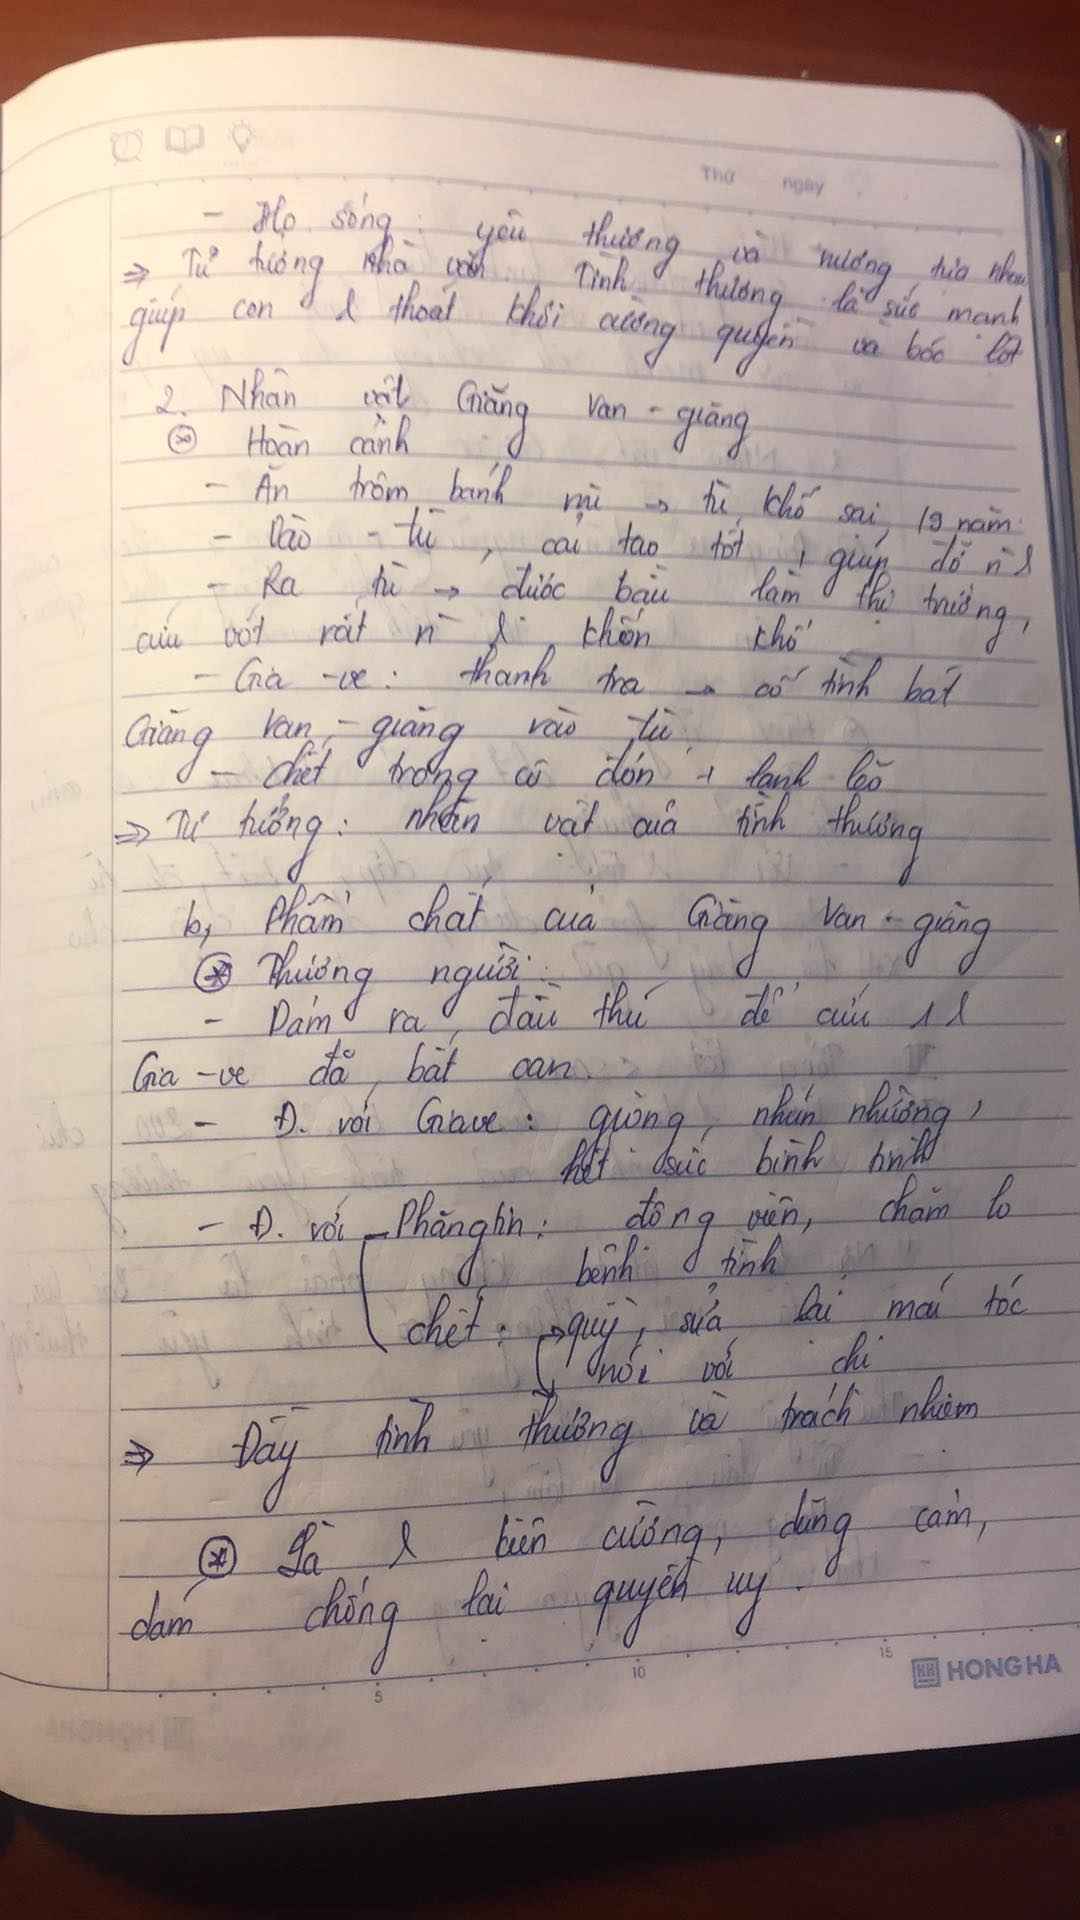 Thứ ngày
- Họ sống : yêu thương và nương tựa nhau
⇒ Tư tưởng nhà văn Tình thương là sức mạnh
giúp con l thoát khỏi cường quyền và bóc lột
2. Nhân vật Giăng Van - giăng
⊛ Hoàn cảnh
- Ăn trộm bánh mì → tù khổ sai, 19 năm
- Vào - tù , cải tạo tốt , giúp đỡ n l
- Ra tù → được bầu làm thị trưởng,
cứu vớt rất n l khốn khổ
- Gia - ve : thanh tra → cố tình bắt
Giăng Van - giăng vào tù
- chết trong cô đơn + lạnh lẽo
⇒ Tư tưởng : nhân vật của tình thương
b, Phẩm chất của Giăng Van - giăng
⊛ Thương người :
- Dám ra đầu thú để cứu 1 l
Gia - ve đã bắt oan
- Đ. với Giave : giọng nhún nhường,
hết sức bình tĩnh
- Đ. với - Phăngtin : động viên, chăm lo
bệnh tình
chết : → quỳ, sửa lại mái tóc
nói với chị
⇒ Đầy tình thương và trách nhiệm
⊛ Là l kiên cường, dũng cảm,
dám chống lại quyền uy .
5 10 15
HH HONG HA